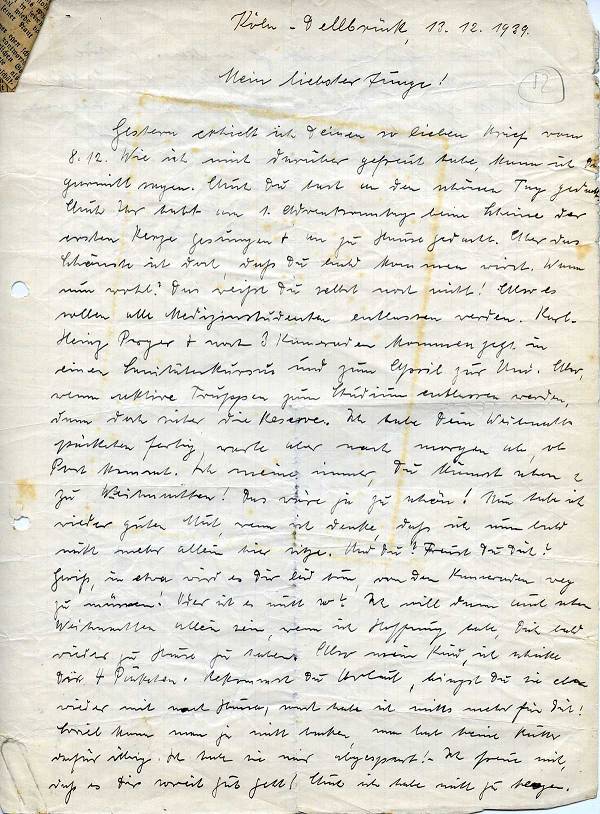 Köln-Dellbrück, 13.12.1939.
Mein liebster Junge!
12
Gestern erhielt ich Deinen so lieben Brief vom
8.12. Wie ich mich darüber gefreut habe, kann ich
garnicht sagen. Auch Du hast an den schönen Tag gedacht.
Auch Ihr habt am 1. Adventsonntag beim Scheine der
ersten Kerze gesungen + an zu Hause gedacht. Aber das
Schönste ist doch, daß Du bald kommen wirst. Wann
nun wohl? Das weißt Du selbst noch nicht! Also es
sollen alle Medizinstudenten entlassen werden. Karl-
Heinz + noch 3 Kameraden kommen jetzt in
einen Sanitäterkursus und zum April zur Uni. Aber,
wenn aktive Truppen zum Studium entlassen werden,
dann doch sicher die Reserve. Ich habe Dein Weihnachts-
päckchen fertig, warte aber noch morgen ab, ob
Post kommt. Ich meine immer, Du kämst schon
zu Weihnachten! Das wäre ja zu schön! Nun habe ich
wieder guten Mut, wenn ich denke, daß ich nun bald
nicht mehr allein hier sitze. Und Du? Freust Du Dich?
Gewiß, in etwa wird es Dir leid tun, von den Kameraden weg
zu müssen! Oder ist es nicht so? Ich will dann auch schon
Weihnachten allein sein, wenn ich Hoffnung habe, Dich bald
wieder zu Hause zu haben. Also mein Kind, ich schicke
Dir 4 Päckchen. Bekommst Du Urlaub, bringst Du sie eben
wieder mit nach Hause, noch habe ich nichts mehr für Dich!
Soviel kann man ja nicht backen, man hat keine Butter
dafür übrig. Ich habe sie mir abgespart! - Ich freue mich,
daß es Dir soweit gut geht! Auch ich habe nicht zu klagen.